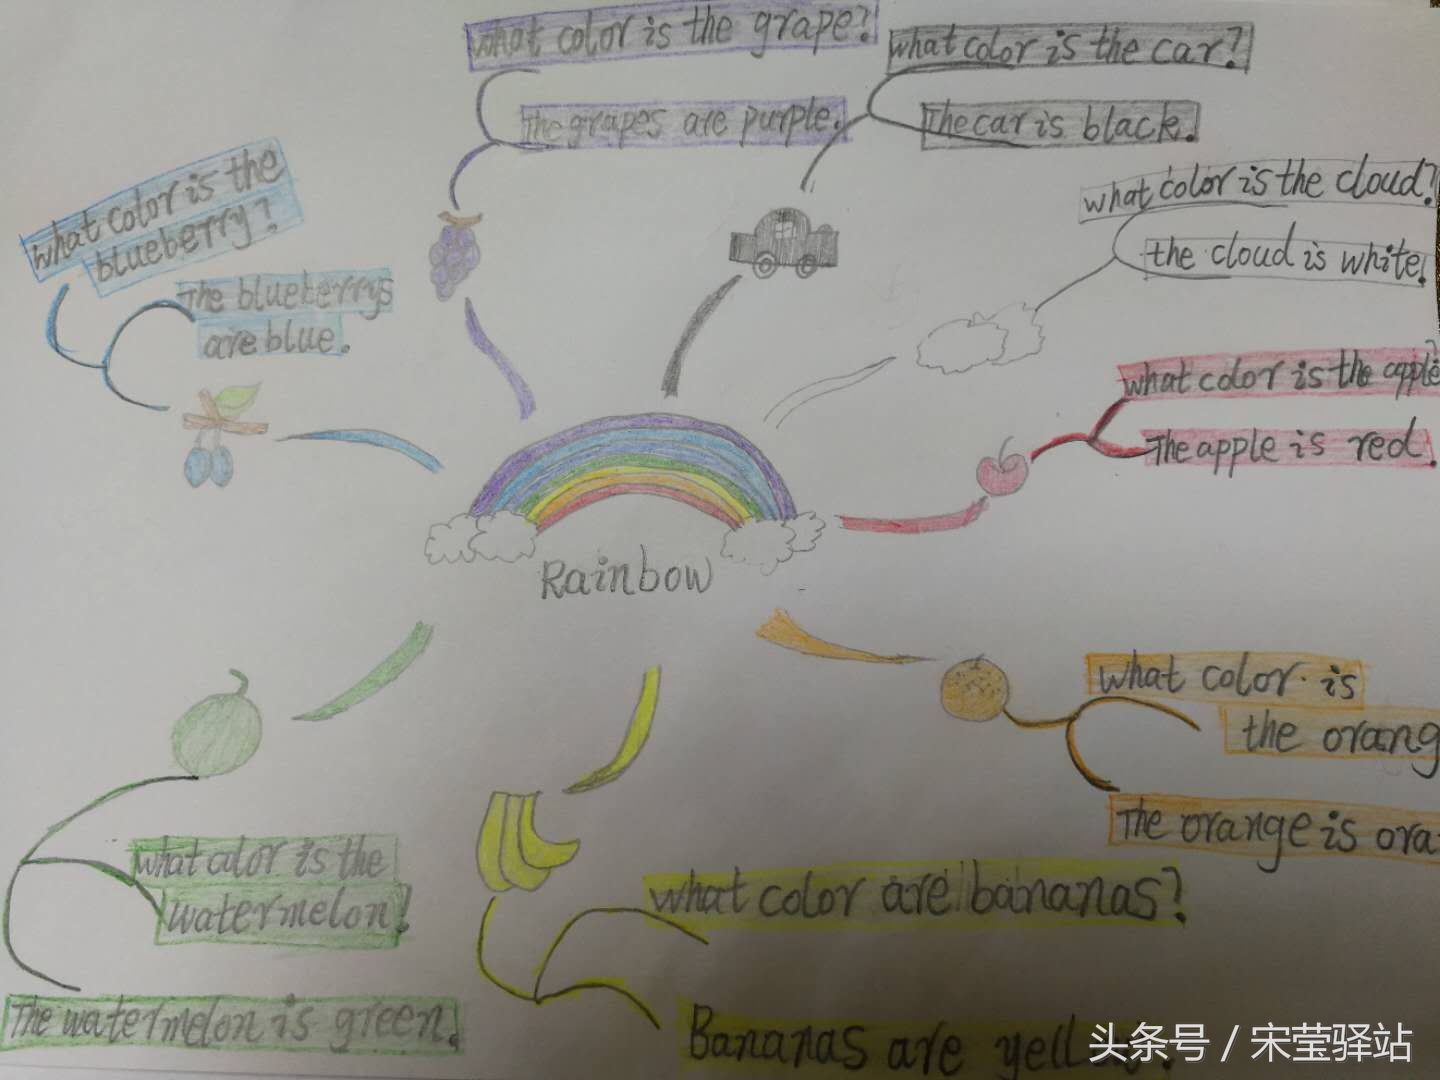 what color is the grape?
The grapes are purple.
what color is the car?
The car is black.
what color is the cloud?
the cloud is white.
what color is the apple?
The apple is red.
what color is the
blueberry?
The blueberrys
are blue.
Rainbow
what color is
the orang
The orange is ora
what calor is the
watermelon!
The watermelon is green.
what color are bananas?
Bananas are yell
头条号 / 宋莹驿站